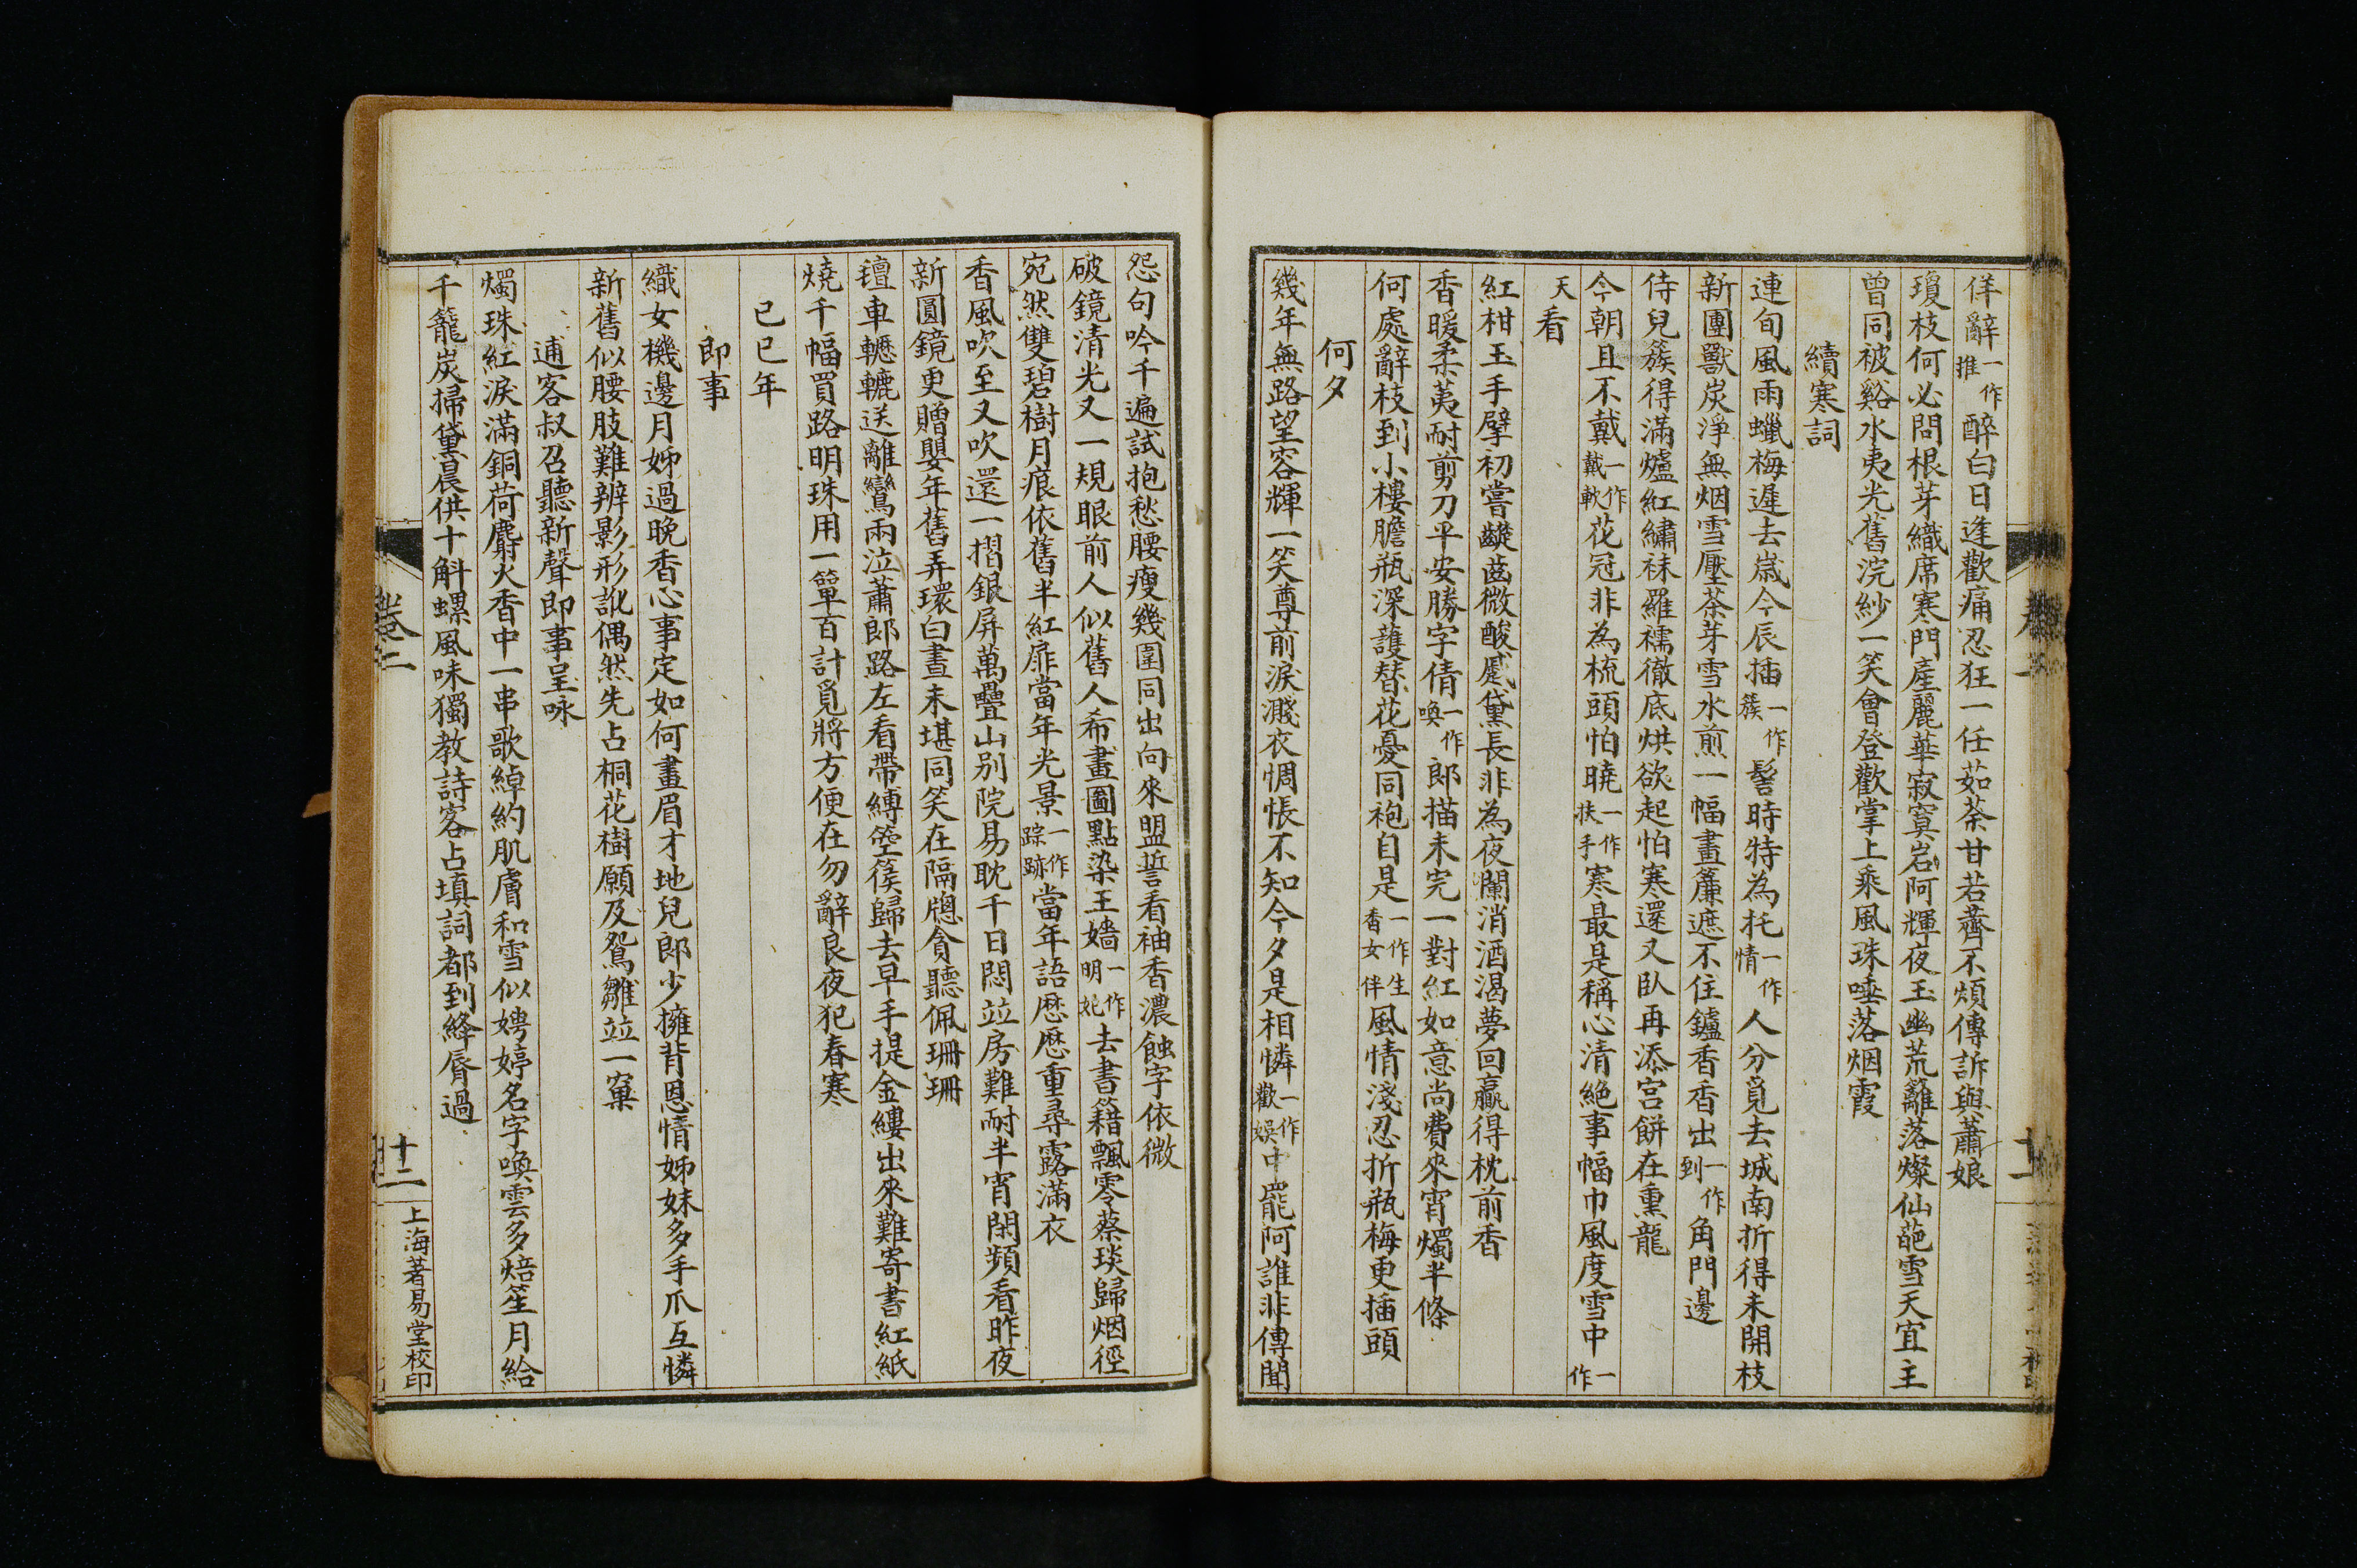 佯辭一作推醉白日逢歡痛忍狂一任茹荼甘若薺不煩傳訴與蕭娘
瓊枝何必問根芽織席寒門產麗華寂寞岩阿輝夜玉幽荒籬落燦仙葩雪天宜主
曾同被谿水夷光舊浣紗一笑會登歡掌上乘風珠唾落烟霞
續寒詞
連旬風雨蠟梅遲去歲今辰插一作簇髻時特為托一作情人分覓去城南折得未開枝
新團獸炭淨無烟雪壓茶芽雪水煎一幅畫簾遮不住鑪香香出一作到角門邊
侍兒簇得滿爐紅繡袜羅襦徹底烘欲起怕寒還又臥再添宮餅在熏龍
今朝且不戴一作戴軟花冠非為梳頭怕曉一作扶手寒最是稱心清絕事幅巾風度雪中一作
天看
紅柑玉手擘初嘗齼齒微酸蹙黛長非為夜闌消酒渴夢回贏得枕前香
香暖柔荑耐剪刀平安勝字倩一作喚郎描未完一對紅如意尚費來宵燭半條
何處辭枝到小樓膽瓶深護替花憂同袍自是一作生香女伴風情淺忍折瓶梅更插頭
何夕
幾年無路望容輝一笑尊前淚濺衣惆悵不知今夕是相憐一作歡娛中罷阿誰非傳聞
怨句吟千遍試抱愁腰瘦幾圍同出向來盟誓看袖香濃蝕字依微
破鏡清光又一規眼前人似舊人希畫圖點染王嬙一作明妃去書籍飄零蔡琰歸烟徑
宛然雙碧樹月痕依舊半紅扉當年光景一作踪跡當年語歷歷重尋露滿衣
香風吹至又吹還一摺銀屏萬疊山別院易耽千日悶竝房難耐半宵閑頻看昨夜
新圓鏡更贈嬰年舊弄環白晝未堪同笑在隔牕貪聽佩珊珊
氊車轣轆送離鸞兩泣蕭郎路左看帶縛箜篌歸去早手提金縷出來難寄書紅紙
燒千幅買路明珠用一簞百計覓將方便在勿辭良夜犯春寒
己巳年
即事
織女機邊月姊過晚香心事定如何畫眉才地兒郎少擁背恩情姊妹多手爪互憐
新舊似腰肢難辨影形訛偶然先占桐花樹願及鴛雛竝一窠
逋客叔召聽新聲即事呈咏
燭珠紅淚滿銅荷麝火香中一串歌綽約肌膚和雪似娉婷名字喚雲多焙笙月給
千籠炭掃黛晨供十斛螺風味獨教詩客占填詞都到絳脣過
卷二
十二
上海著易堂校印